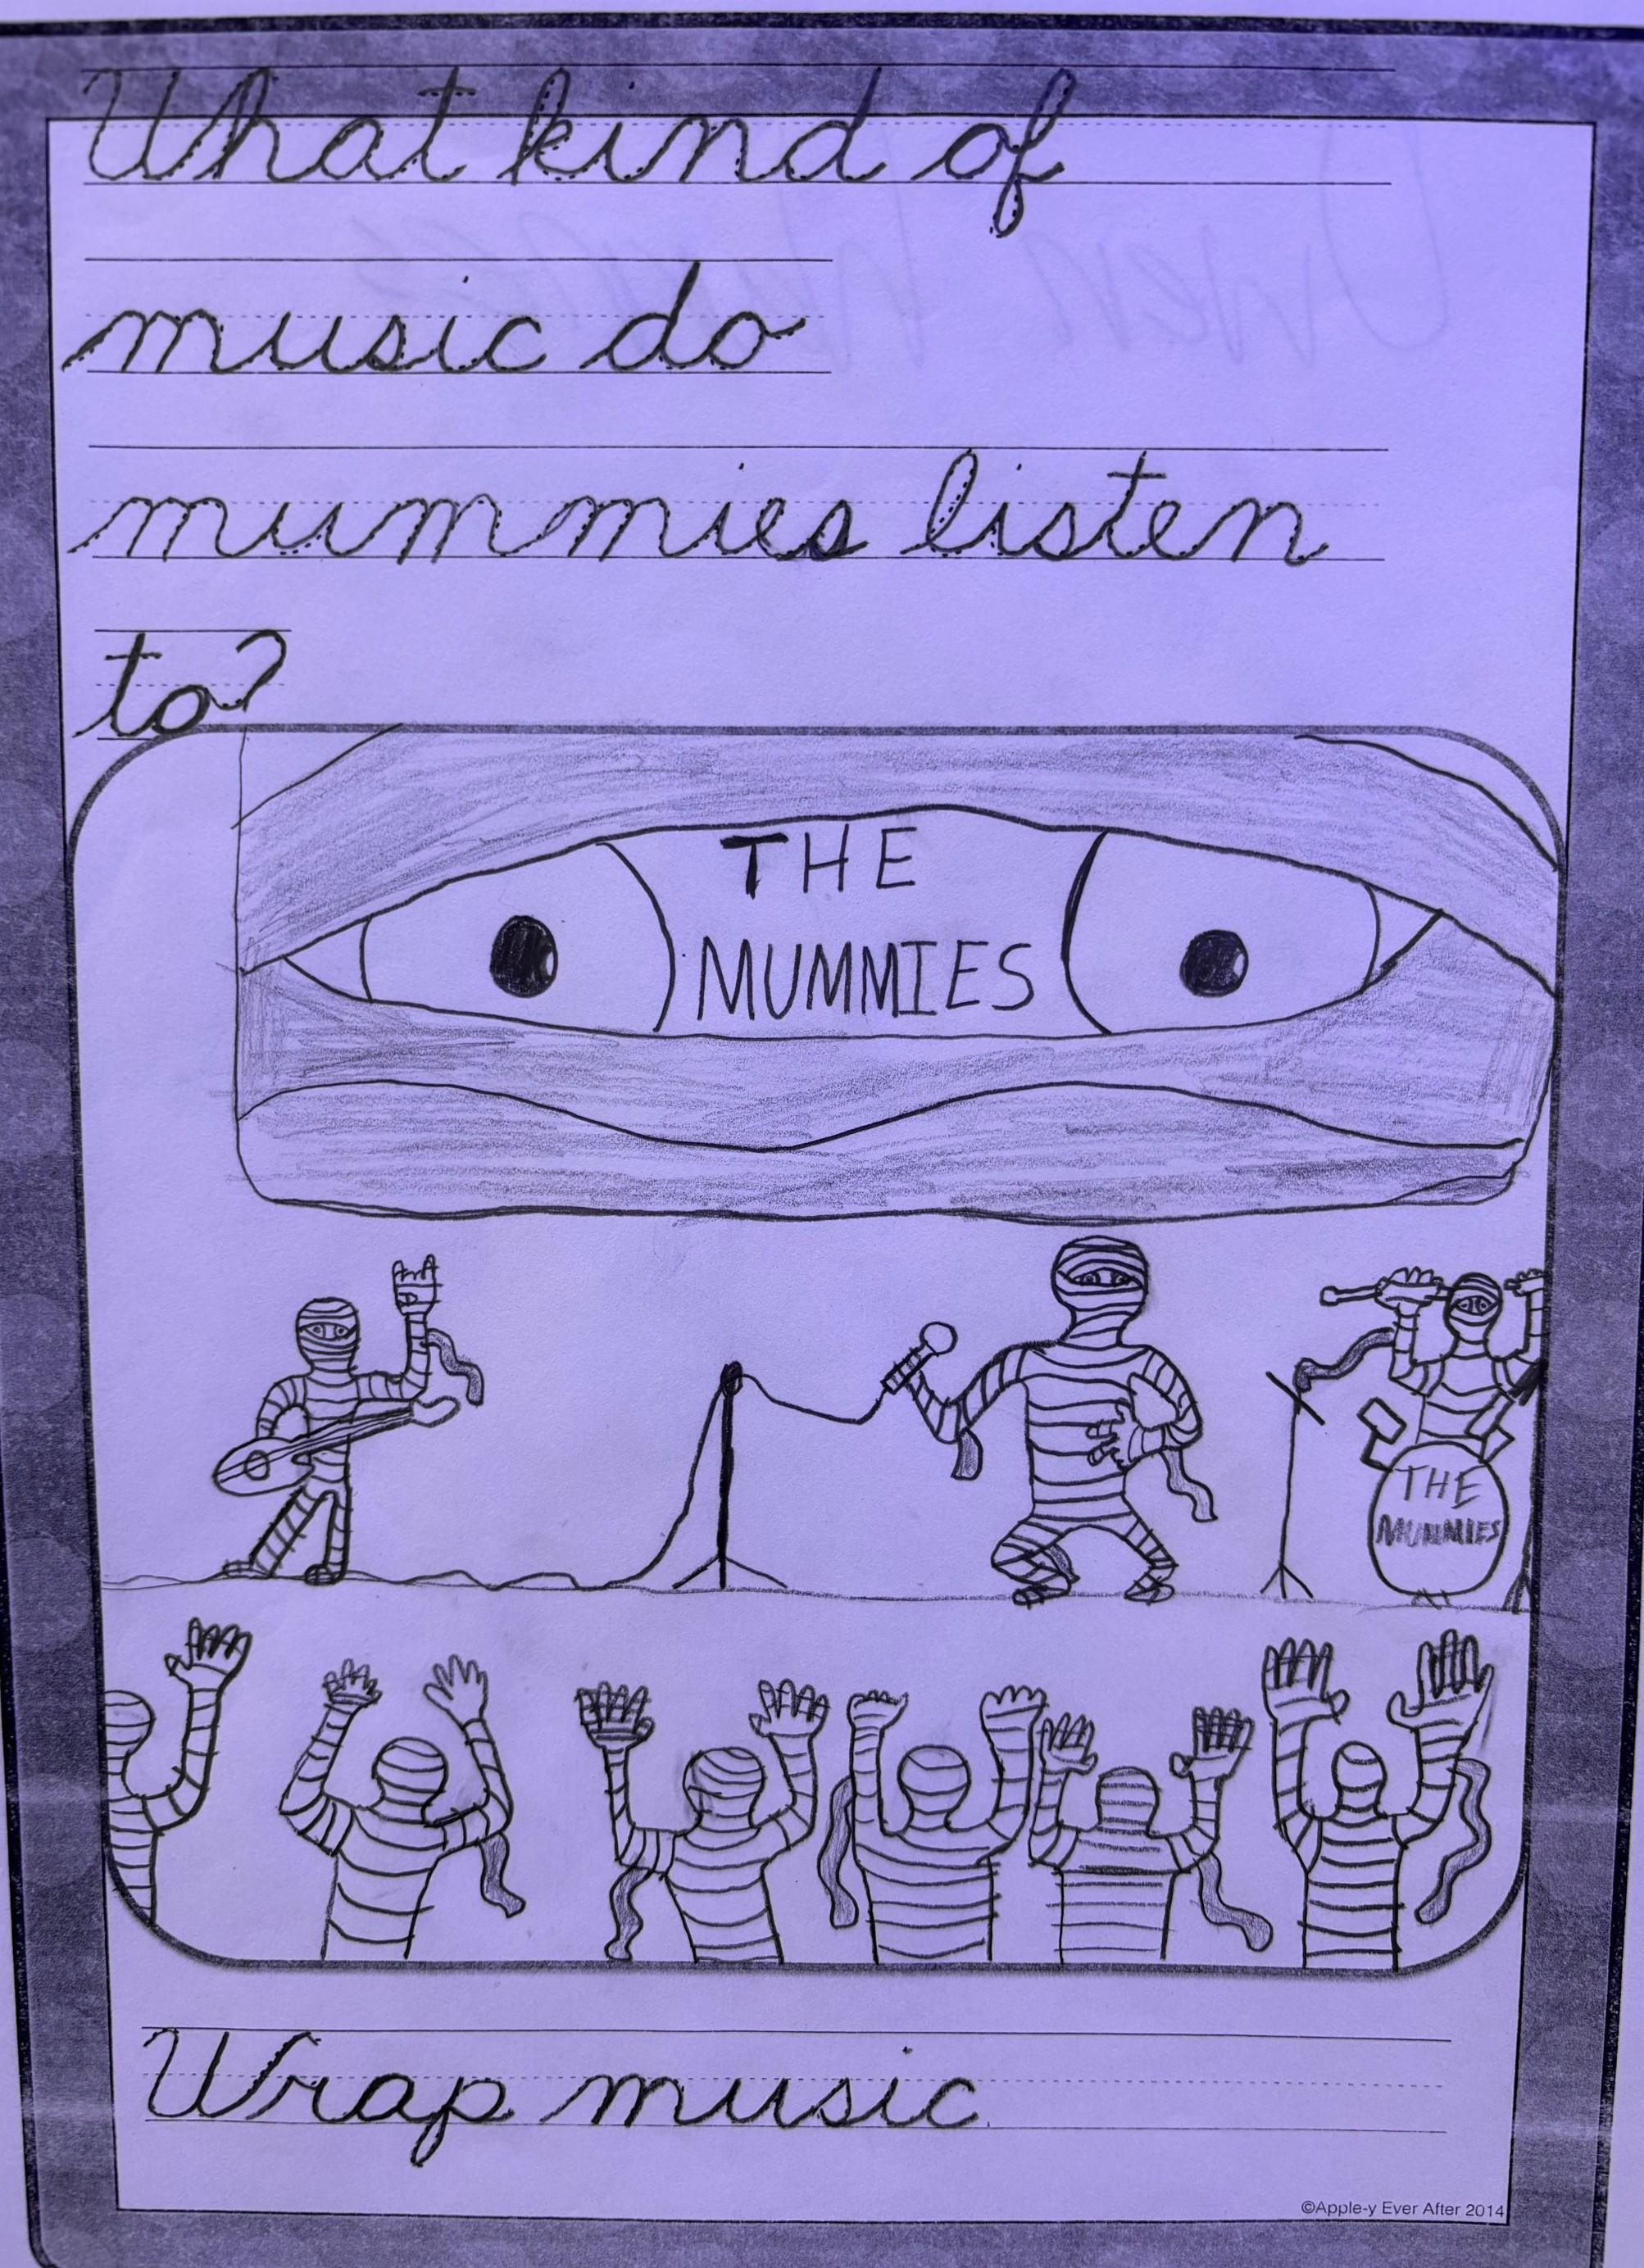 What kind of
music do
mummies listen
to?
THE
MUMMIES
THE
MUMMIES
Wrap music
©Apple-y Ever After 2014